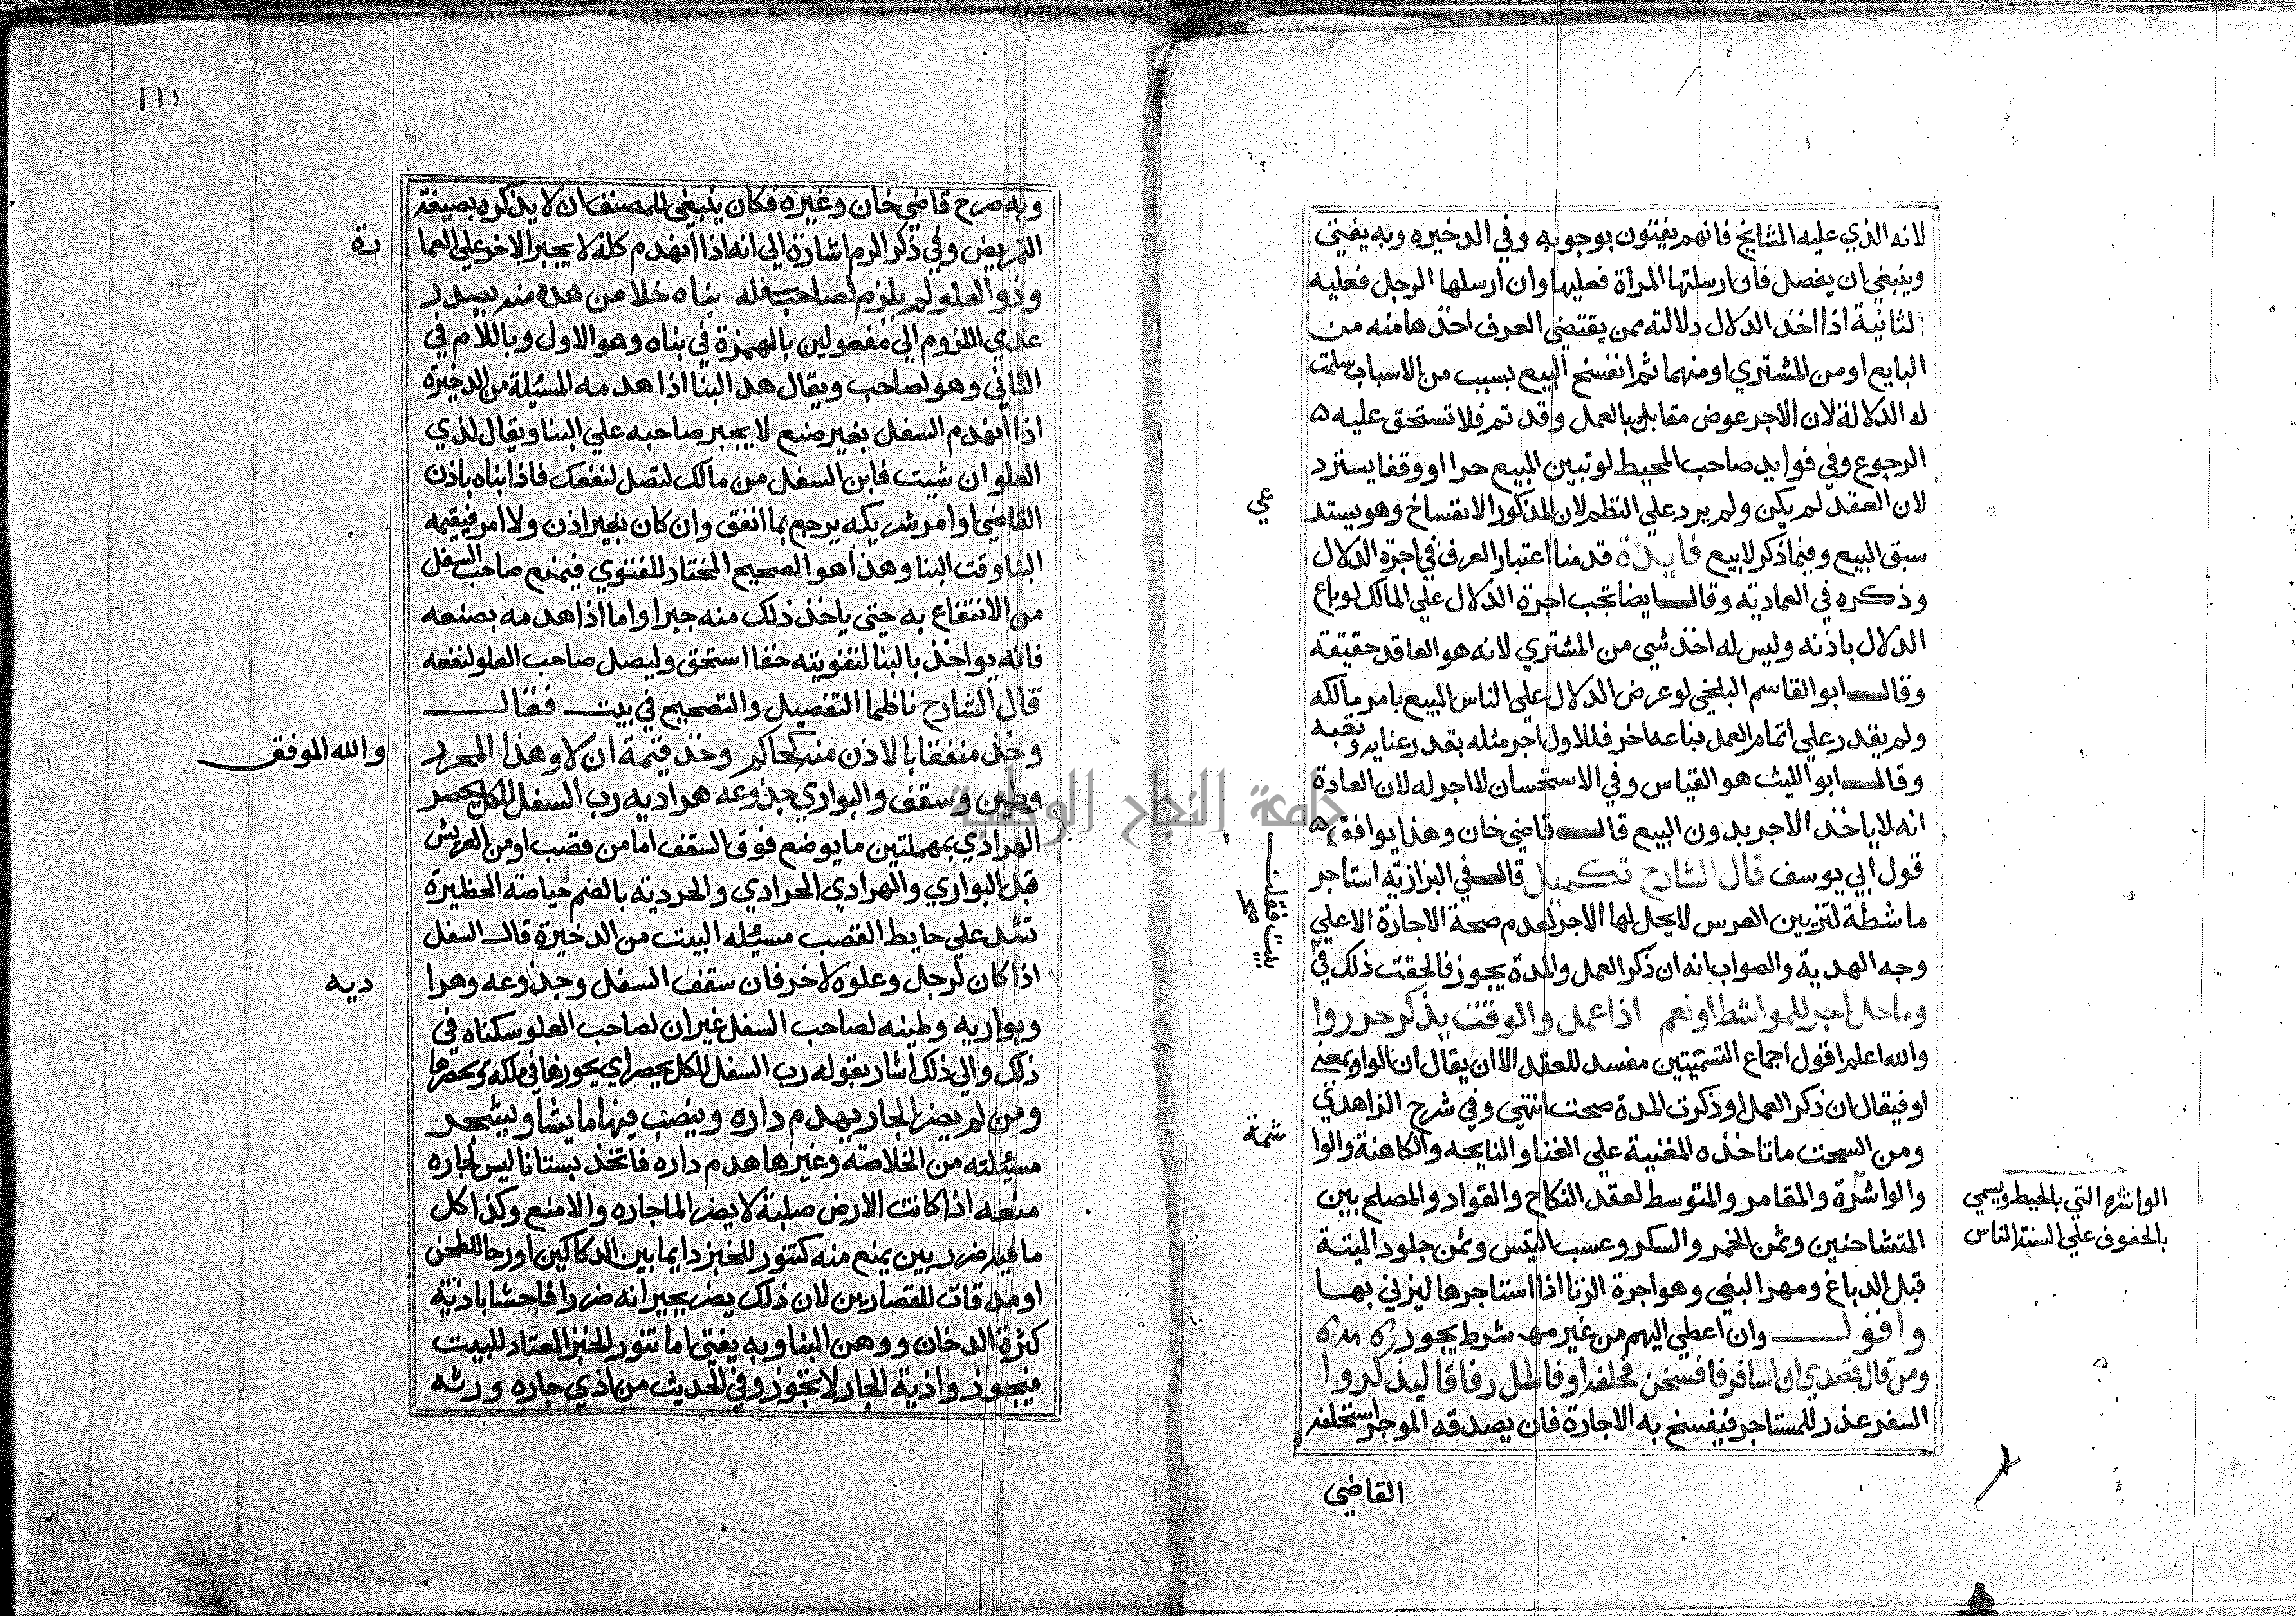 لانه الذي عليه المشايخ فانهم يفتون بوجوبه وفي الدخيره وبه يفتي
وينبغي ان يفصل فان ارسلتها المراة فعليها وان ارسلها الرجل فعليه
الثانية اذا اخذ الدلال دلالته ممن يقتضي العرف اخذها منه من
البايع او من المشتري او منهما ثم انفسخ البيع بسبب من الاسباب سلمت
له الدلالة لان الاجر عوض مقابل بالعمل وقد تم فلا تستحق عليه
الرجوع وفي فوايد صاحب المحيط لو تبين المبيع حرا او وقفا يسترد
لان العقد لم يكن ولم يرد علي النظم لان المذكور الانفساخ وهو يستد
عي
سبق البيع وفيما ذكر لا بيع فايدة قدمنا اعتبار العرف في اجرة الدلال
وذكره في العمادية وقال ايضا تجب اجرة الدلال علي المالك لو باع
الدلال باذنه وليس له اخذ شي من المشتري لانه هو العاقد حقيقة
وقال ابو القاسم البلخي لو عرض الدلال علي الناس المبيع بامر مالكه
ولم يقدر علي اتمام العمل فباعه اخر فللاول اجر مثله بقدر عنايه وتعبه
وقال ابو الليث هو القياس وفي الاستحسان لا اجر له لان العادة
انه لا ياخذ الاجر بدون البيع قال قاضي خان وهذا يوافق
قول ابي يوسف قال الشارح تكميل قال في البزازية استاجر
ماشطة لتزيين العرس لا يحل لها الاجر لعدم صحة الاجارة الا علي
وجه الهدية والصواب انه ان ذكر العمل والمدة يجوز فالحقت ذلك في
بيت فقلت
وما حل اجر للمواشط او نعم اذا عمل والوقت يذكر حرروا
والله اعلم اقول اجماع التسميتين مفسد للعقد الا ان يقال ان الواو بمعني
او فيقال ان ذكر العمل او ذكرت المدة صحت انتهي وفي شرح الزاهدي
ومن السحت ما تاخذه المغنية علي الغنا والنايحه والكاهنة والوا
شمة
والواشرة والمقامر والمتوسط لعقد النكاح والقواد والمصلح بين
الواشره التي بالخيط ويسمي
بالحفوف علي السنة الناس
المتشاحنين وثمن الخمر والسكر وعسب التيس وثمن جلود الميتة
قبل الدباغ ومهر البغي وهو اجرة الزنا اذا استاجرها ليزني بها
واقول وان اعطي اليهم من غير شرط يجوز
ومن قال قصدي ان اسافر فافسخن فحلفه او فاسال رفاقا ليذكروا
السفر عذر للمستاجر فيفسخ به الاجارة فان يصدقه الموجر استحلفه
القاضي
١١١
وبه صرح قاضي خان وغيره فكان ينبغي للمصنف ان لا يذكره بصيغة
التمريض وفي ذكر الرم اشارة الي انه اذا انهدم كله لا يجبر الاخر علي العما
رة
وذو العلو لم يلزم لصاحب سفله بناه خلا من هده منه يصدر
عدي اللزوم الي مفعولين بالهمزة في بناه وهو الاول وباللام في
الثاني وهو لصاحب ويقال هد البنا اذا هدمه المسئلة من الدخيرة
اذا انهدم السفل بغير صنع لا يجبر صاحبه علي البنا ويقال لذي
العلو ان شيت فابن السفل من مالك لتصل لنفعك فاذا بناه باذن
القاضي او امر شريكه يرجع بما انفق وان كان بغير اذن ولا امر فبقيمه
البنا وقت البنا وهذا هو الصحيح المختار للفتوي فيمنع صاحب السفل
من الانتفاع به حتي ياخذ ذلك منه جبرا واما اذا هدمه بصنعه
فانه يواخذ بالبنا لتفويته حقا استحق وليصل صاحب العلو لنفعه
قال الشارح ناظما التفصيل والتصحيح في بيت فقال
وخذ منفقا بالاذن منه كحاكم وخذ قيمة ان لا وهذا المحرر
والله الموفق
وطين وسقف والبواري جذوعه هراديه رب السفل للكل يحصر
الهرادي بمهملتين ما يوضع فوق السقف اما من قصب او من العريش
قبل البواري والهرادي الحرادي والحردية بالضم حياصة الحظيرة
تشد علي حايط القصب مسئله البيت من الدخيرة قال السفل
اذا كان لرجل وعلوه لاخر فان سقف السفل وجذوعه وهرا
ديه
وبواريه وطينه لصاحب السفل غير ان لصاحب العلو سكناه في
ذلك والي ذلك اشار بقوله رب السفل للكل يحصر اي يحوزها في ملكه ويحصرها
ومن لم يضر الجار يهدم داره وينصب فيها ما يشا ويشجر
مسئلته من الخلاصة وغيرها هدم داره فاتخذ بستانا ليس لجاره
منعه اذا كانت الارض صلبة لا يضر الما جاره والا منع وكذا كل
ما فيه ضرر بين يمنع منه كتنور للخبز دايما بين الدكاكين او رحا للطحن
او مدقات للقصارين لان ذلك يضر بجيرانه ضررا فاحشا باذية
كثرة الدخان ووهن البنا وبه يفتي اما تنور الخبز المعتاد للبيت
فيجوز واذية الجار لا تجوز وفي الحديث من اذي جاره ورثه